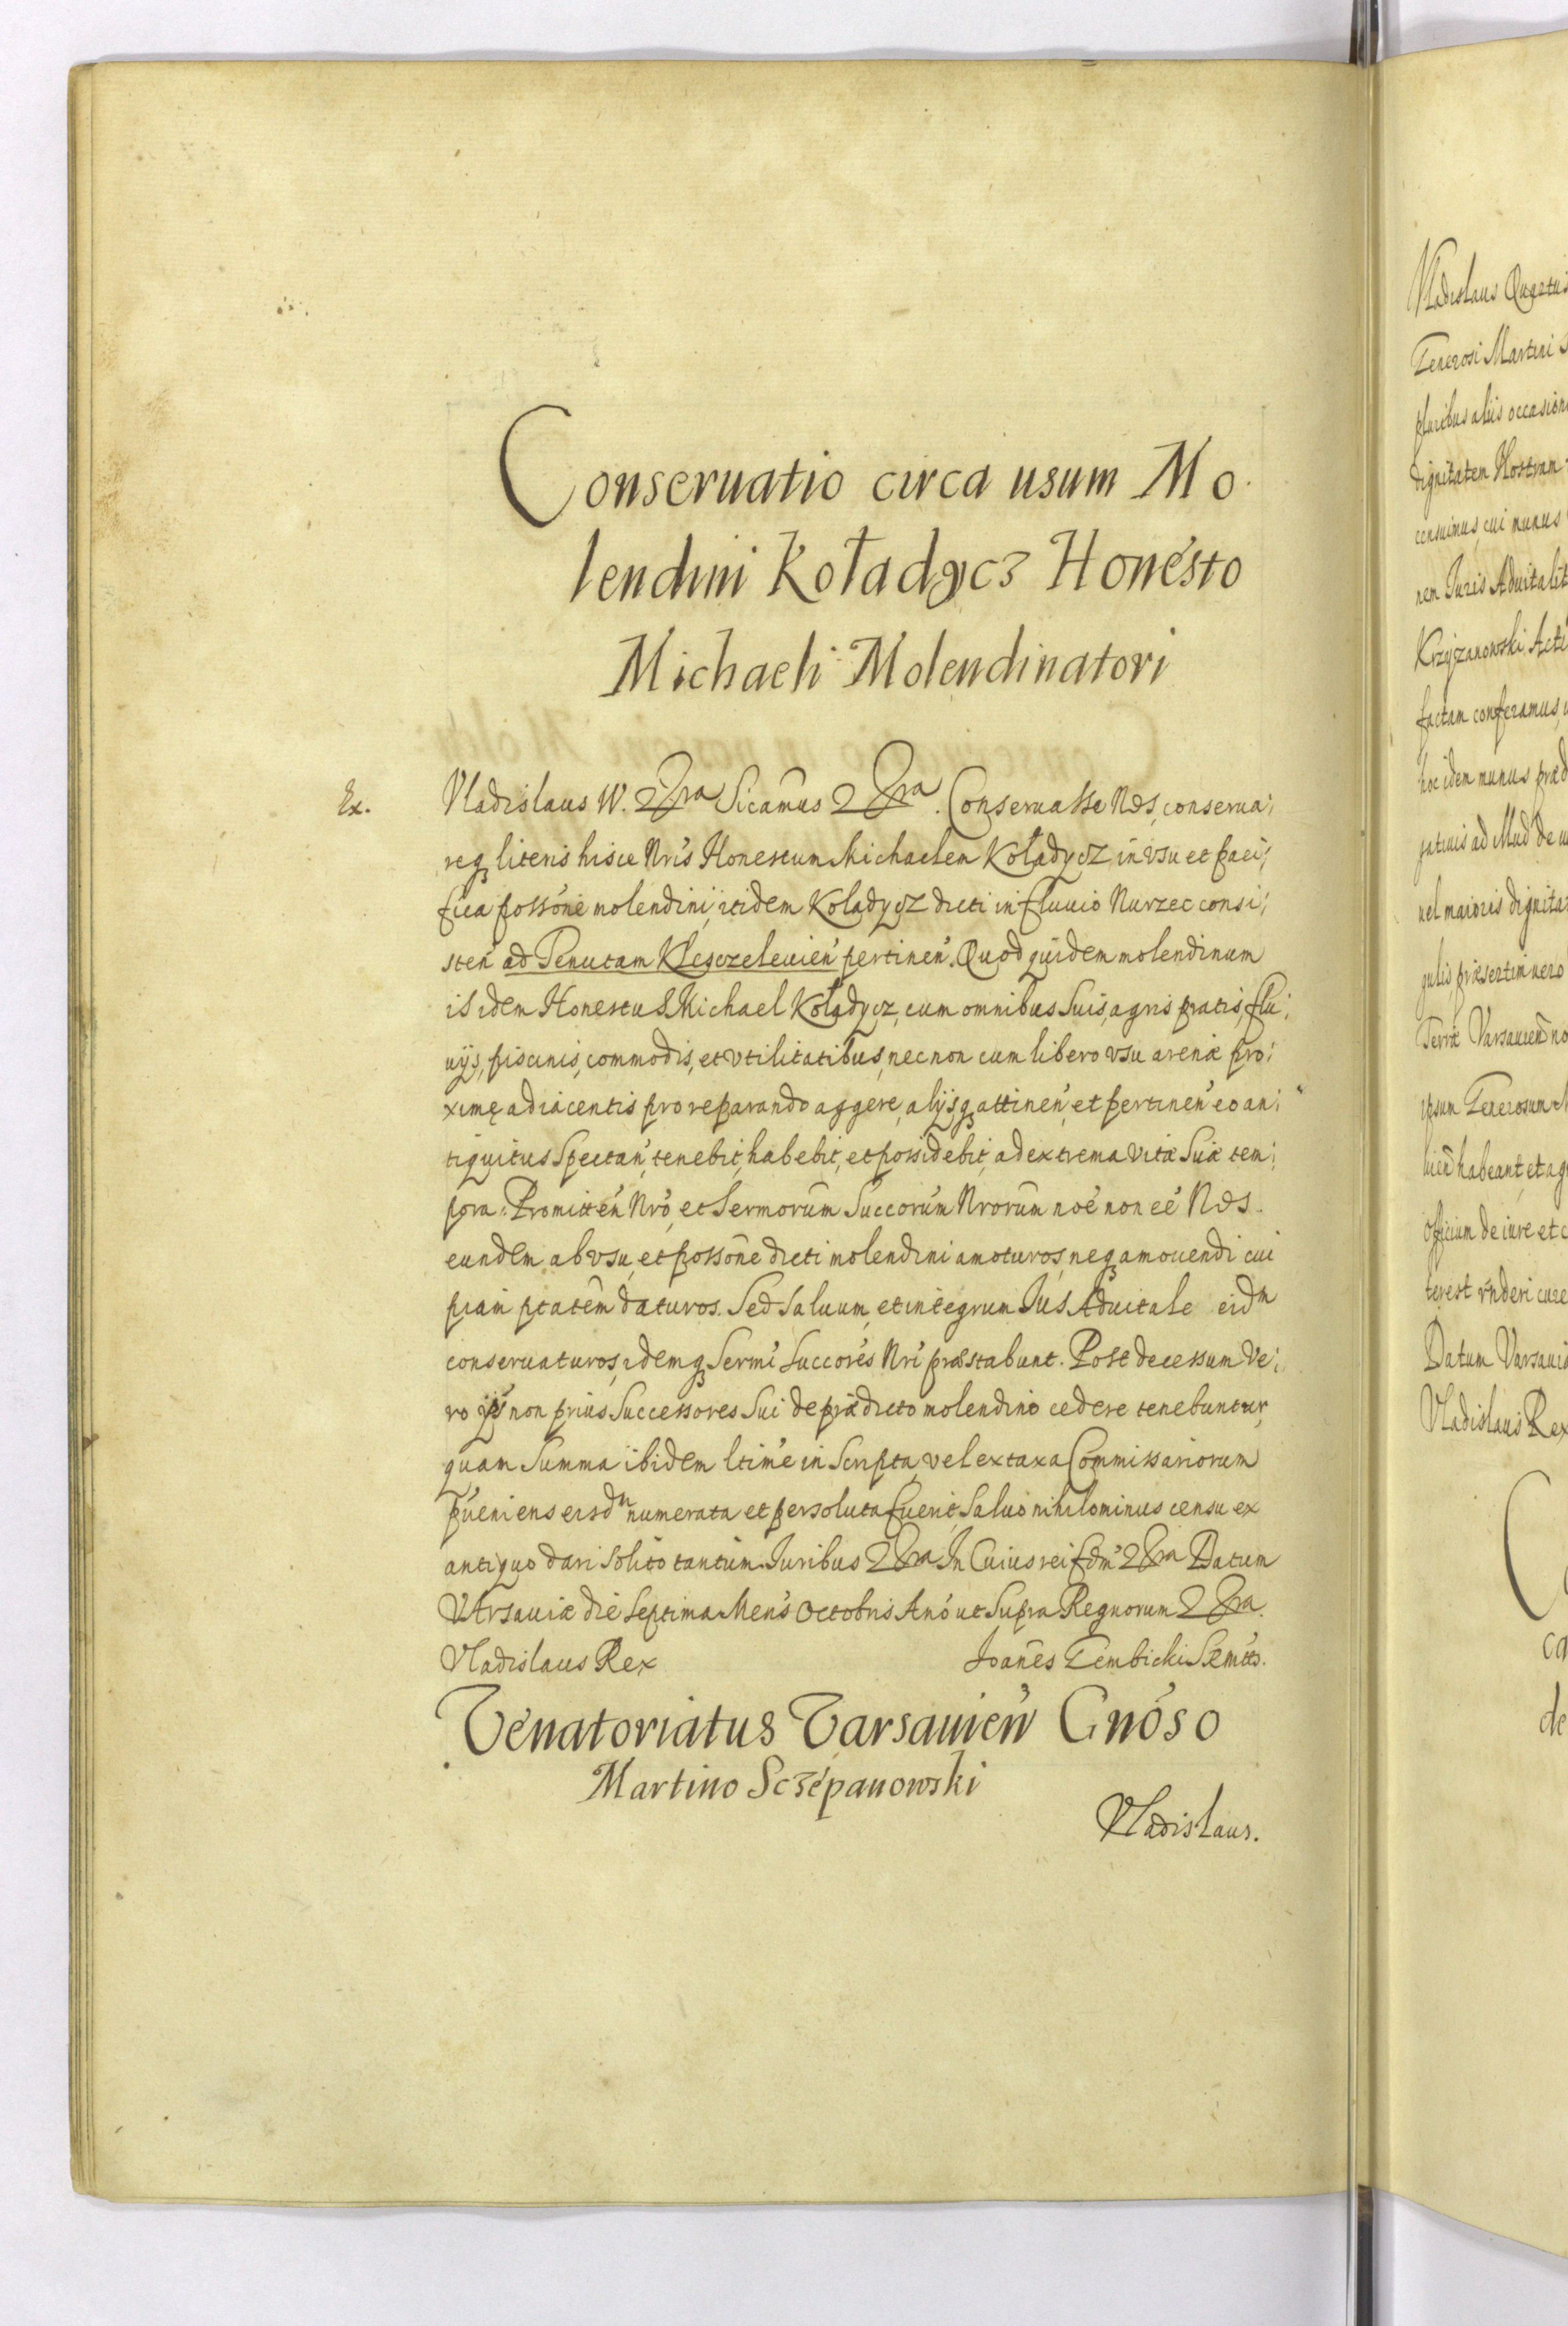 Conseruatio circa usum Mo
lendini Koładycz Honésto
Michaeli Molendinatori
Ex.
Vladislaus IV. Sicamus. Conseruasse Nos, conserua:
reqꝫ literis hisce Nris Honestum Michaelem Koładycz in vsu et paci:
fica possone molendini, itidem Koladycz dicti in fluuio Nurzec consi:
sten ad Tenutam Klesczelewien pertinen. Quod quidem molendinum
is idem Honestus Michael Koładycz, cum omnibus suis, agris pratis, flu:
uijs, piscinis, commodis, et vtilitatibus, necnon cum libero vsu arenæ pro:
ximę adiacentis pro reparando aggere, alijsqꝫ attinen, et pertinen eo an:
tiquitus spectan, tenebit, habebit, et possidebit, ad extrema vitæ suæ tem:
pora: Promitten Nro, et Sermorum Succorum Nrorum noe non eé Nos
eundem ab vsu, et possone dicti molendini amoturos, neqꝫ amouendi cui
piam ptatem daturos. Sed saluum, et integrum Ius Aduitale eidm
conseruaturos, idemqꝫ Sermi Succores Nri præstabunt. Post decessum ve:
ro ips non prius Successores sui de prædicto molendino cedere tenebuntur,
quam summa ibidem ltime inscripta, vel ex taxa Commissariorum
pueniens eisdm numerata et persoluta fuerit, saluo nihilominus censu ex
antiquo dari solito tantum. Iuribus In Cuius rei fdm Datum
Varsauiæ die septima Mens Octobris Ano ut supra Regnorum
Vladislaus Rex Joanes Gembicki
Venatoriatus Varsauien Gnóso
Martino Sczépanowski
Vladislaus.
Vladislaus Quartus
Generosi Martini
pluribus aliis occasion
dignitatem Nostram
censuimus, cui munus
nem Iuris Aduitalit
Krzyczanowski Acti
factam conferamus,
hoc idem munus præd
gatiuis ad illud de
uel maioris dignita
gulis, præsertim uero
Terræ Varsauien no
ipsum Generosum M
habeant, et ag
officium de iure et c
terest
Datum Varsauiæ
Vladislaus Rex
C
ca
de